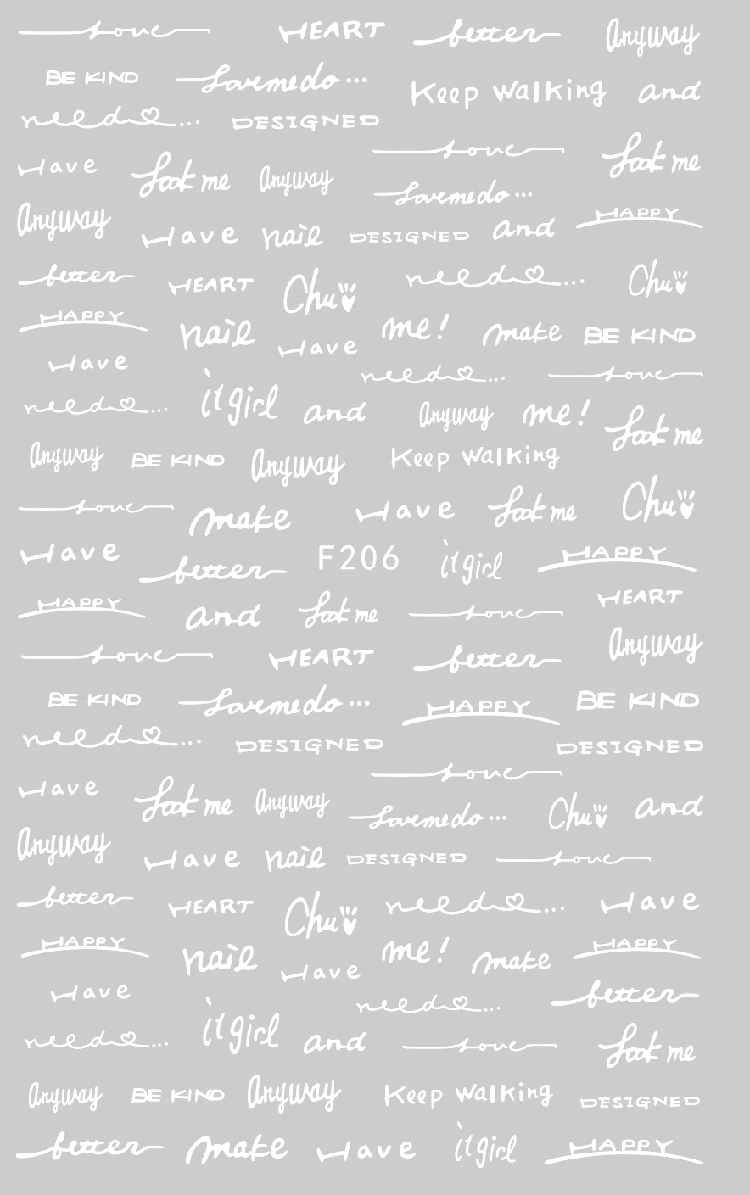 Love HEART better Anyway
BE KIND Lovemedo... Keep Walking and
need... DESIGNED
Love
Have Look me Anyway Lovemedo... Look me
Anyway Have nail DESIGNED and HAPPY
better HEART Chu need... Chu
HAPPY nail Have me! make BE KIND
Have need... Love
need... it girl and Anyway me! Look me
Anyway BE KIND Anyway Keep Walking
Love make Have Look me Chu
Have better F206 it girl HAPPY
HAPPY and Look me Love HEART
Love HEART better Anyway
BE KIND Lovemedo... HAPPY BE KIND
need... DESIGNED DESIGNED
Love
Have Look me Anyway Lovemedo... Chu and
Anyway Have nail DESIGNED Love
better HEART Chu need... Have
HAPPY nail Have me! make HAPPY
Have need... better
need... it girl and Love Look me
Anyway BE KIND Anyway Keep Walking DESIGNED
better make Have it girl HAPPY